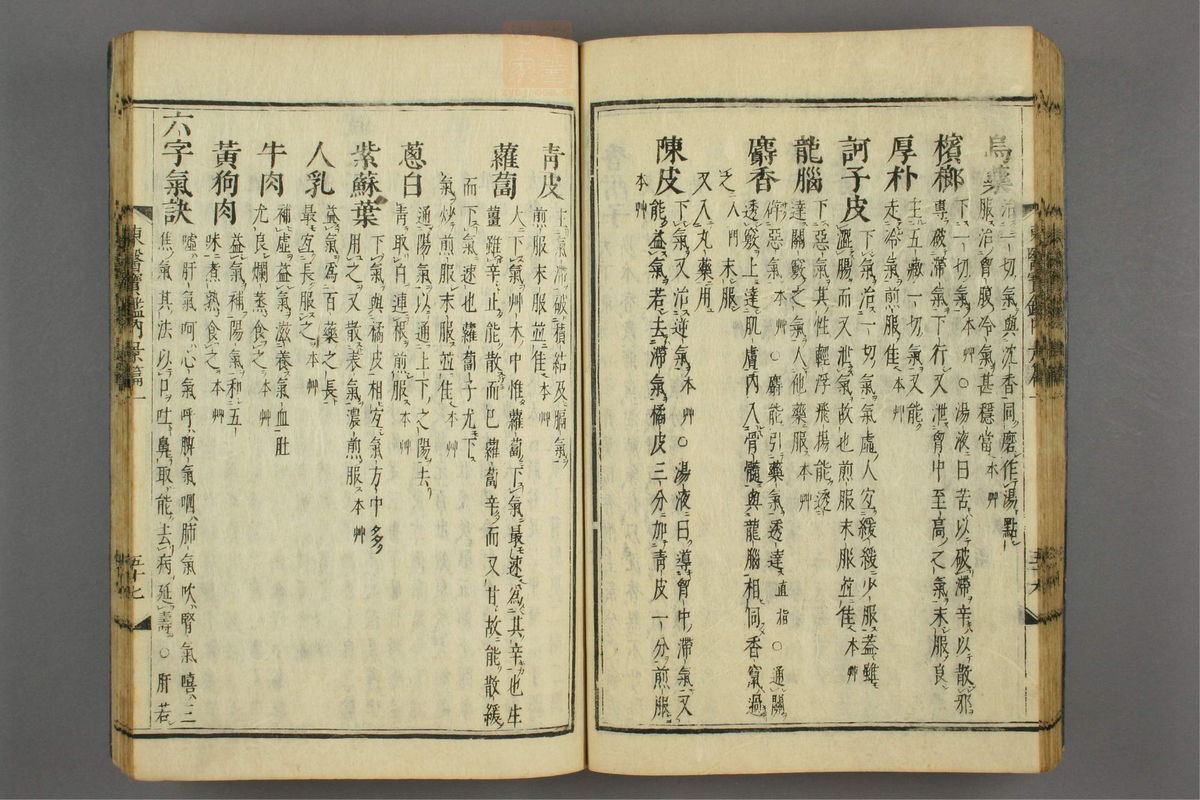 烏藥
治一切氣與沈香同磨作湯點
服治胷腹冷氣甚穩當 本艸
檳榔
下一切氣 本艸 ○湯液曰苦以破滯辛以散邪
專破滯氣下行又泄胷中至高之氣末服良
厚朴
主五藏一切氣又能
走冷氣煎服佳 本艸
訶子皮
下氣治一切氣氣虛人宜緩緩少服蓋雖
澀腸而又泄氣故也煎服末服並佳 本艸
龍腦
下惡氣其性輕浮飛揚能透
達關竅之氣入他藥服 本艸
麝香
辟惡氣 本艸 ○麝能引藥氣透達 直指 ○通關
透竅上達肌膚內入骨髓與龍腦相同香竄過
之 入門 末服
又入丸藥用
陳皮
下氣又治逆氣 本艸 ○湯液曰導胷中滯氣又
能益氣若去滯氣橘皮三分加青皮一分煎服
本艸
東醫寶鑑內景篇一
五十六
青皮
主氣滯破積結及膈氣
煎服末服並佳 本艸
蘿蔔
大下氣艸木中惟蘿蔔下氣最速爲其辛也生
薑雖辛止能散而已蘿蔔辛而又甘故能散緩
而下氣速也蘿蔔子尤下
氣炒煎服末服並佳 本艸
蔥白
通陽氣以通上下之陽去
青取白連根煎服 本艸
紫蘇葉
下氣與橘皮相宜氣方中多
用之又散表氣濃煎服 本艸
人乳
益氣爲百藥之長
最宜長服之 本艸
牛肉
補虛益氣滋養氣血肚
尤良爛蒸食之 本艸
黃狗肉
益氣補陽氣和五
味煮熟食之 本艸
六字氣訣
噓肝氣呵心氣呼脾氣呬肺氣吹腎氣嘻三
焦氣其法以口吐鼻取能去病延壽○肝若
東醫寶鑑內景篇一
五十七